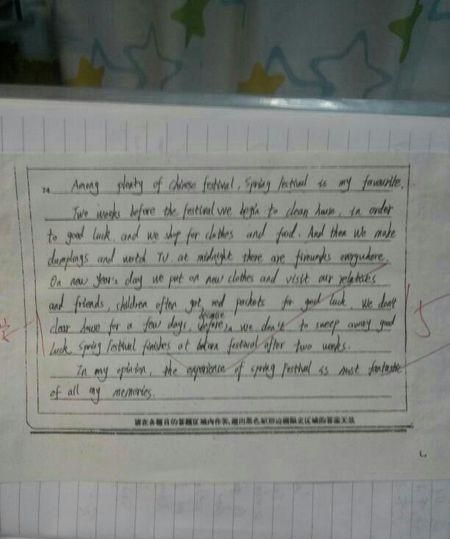 74 Among plenty of Chinese festival, Spring festival is my favourite.
Two weeks before the festival we begin to clean house, in order
to good luck, and we shop for clothes and food. And then we make
dumplings and watch TV at midnight there are fireworks everywhere.
On new year's day we put on new clothes and visit our relatives
and friends, children often get red packets for good luck. We don't
clear house for a few days, we don't to sweep away good
luck. Spring festival finishes at festival after two weeks.
In my opinion, the experience of spring festival is most fantastic
of all my memories.
请在各题目的答题区域内作答,超出黑色矩形边框限定区域的答案无效